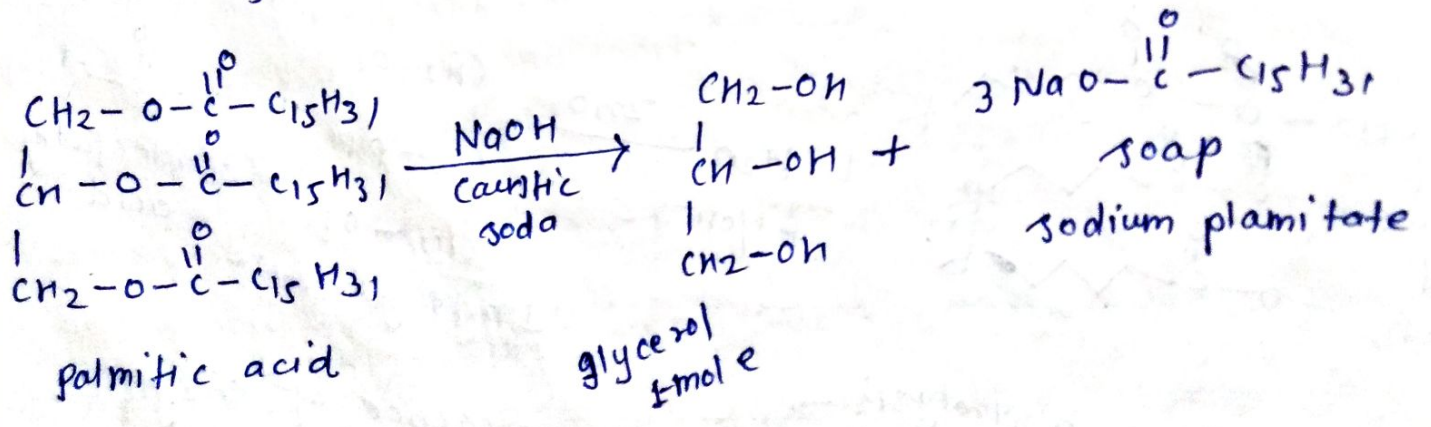 O
CH2-O-C-C15H31
O
CH-O-C-C15H31
O
CH2-O-C-C15H31
palmitic acid
NaOH
caustic
soda
CH2-OH
CH-OH +
CH2-OH
glycerol
1mole
O
3 NaO-C-C15H31
soap
sodium plamitate